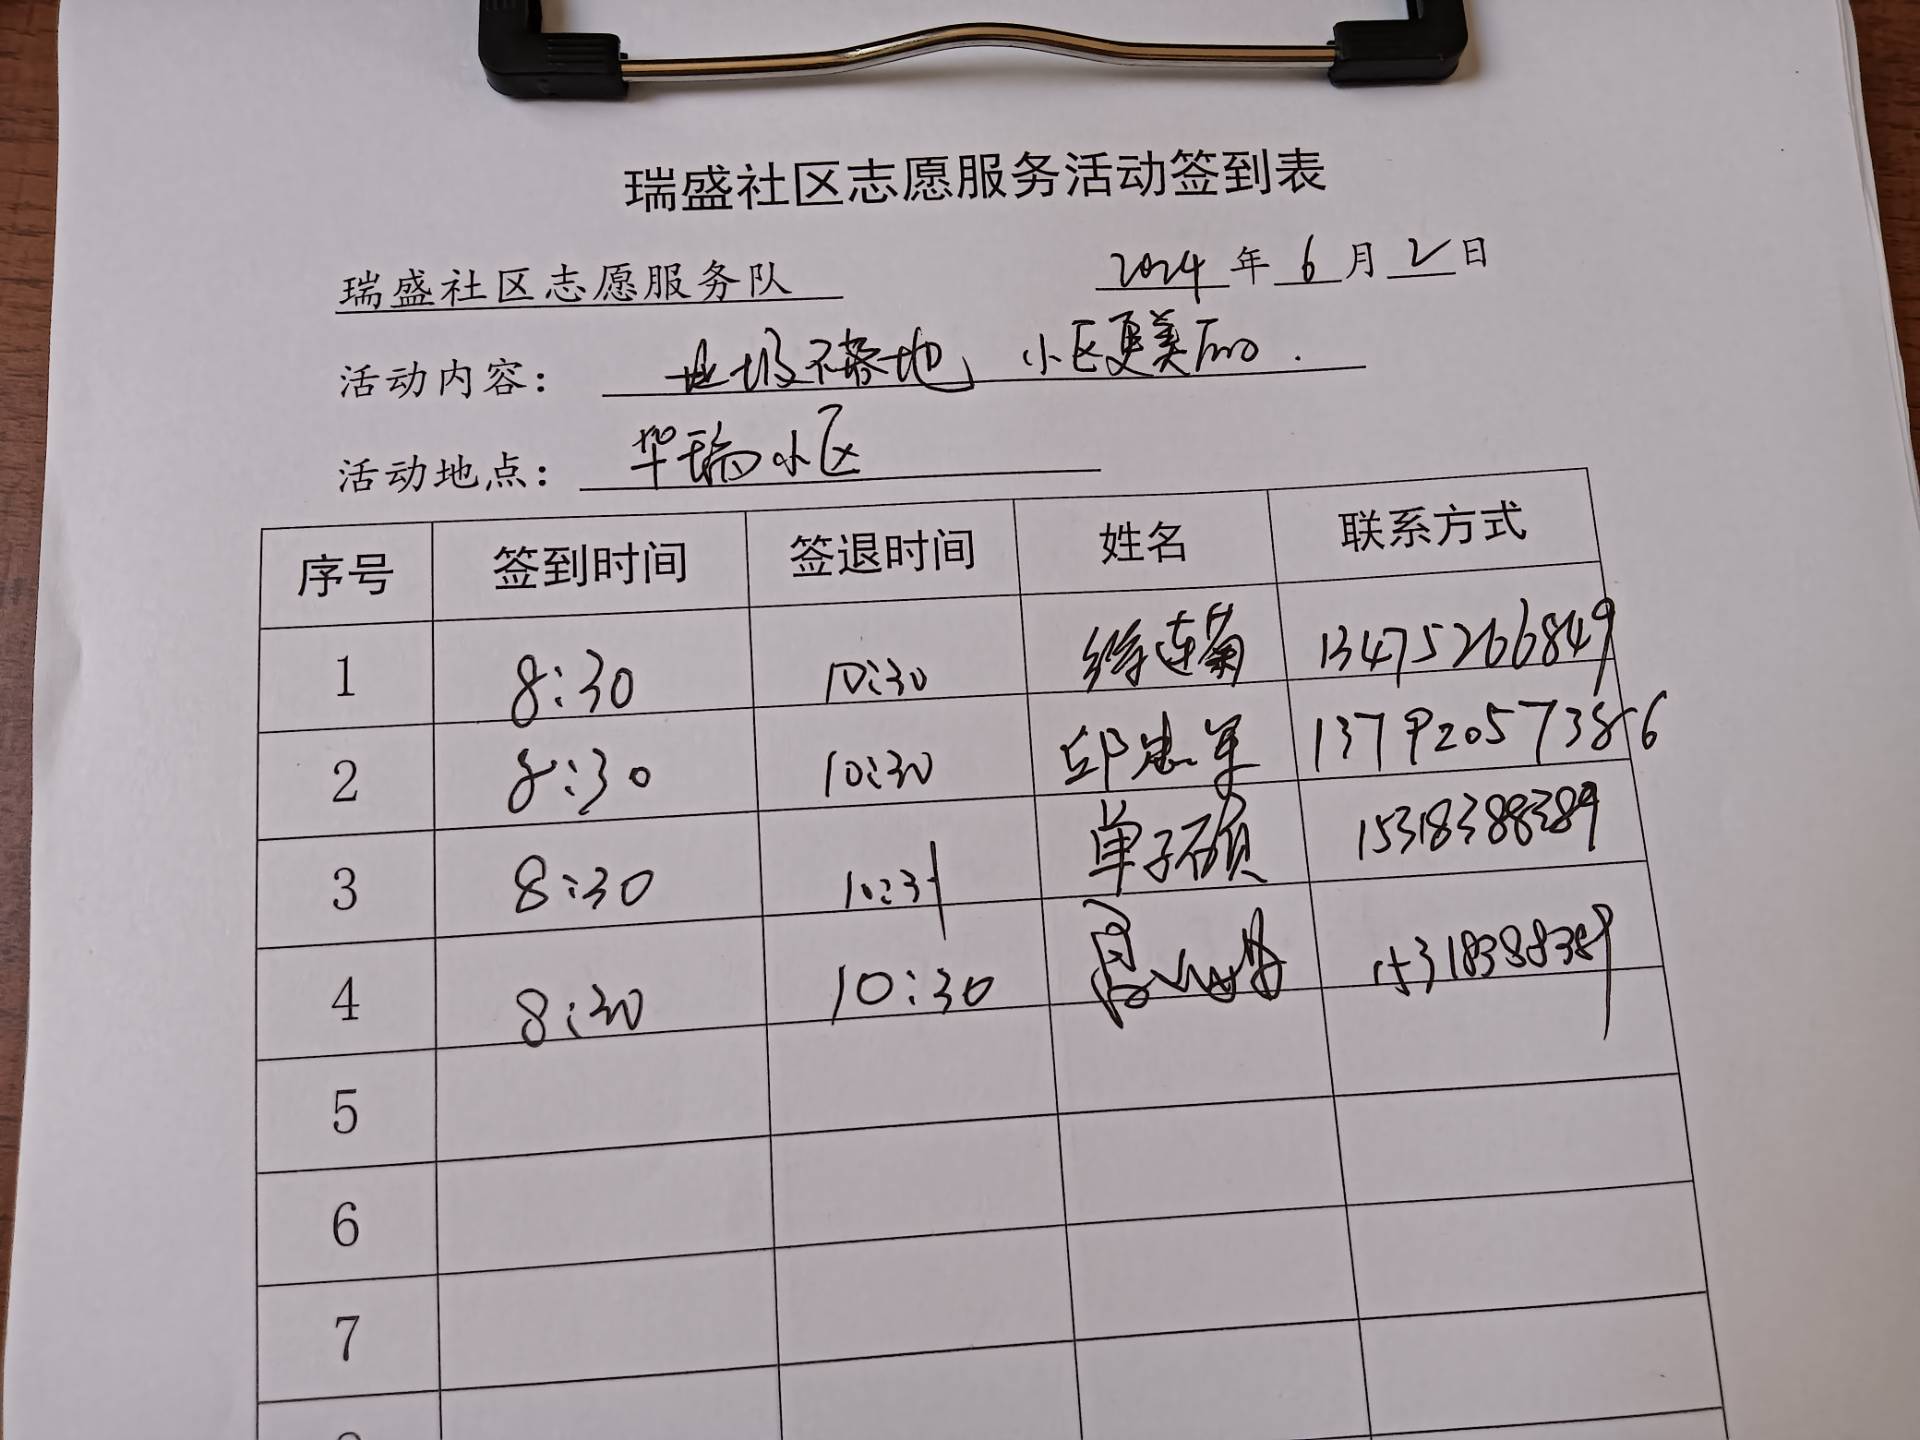 瑞盛社区志愿服务活动签到表
瑞盛社区志愿服务队 2024年6月2日
活动内容： 垃圾不落地 小区更美丽.
活动地点： 华瑞小区
序号 签到时间 签退时间 姓名 联系方式
1 8:30 10:30 徐连菊 13475266849
2 8:30 10:30 邱忠军 13792057386
3 8:30 单子硕 15318388389
4 8:30 10:30 15318388389
5
6
7